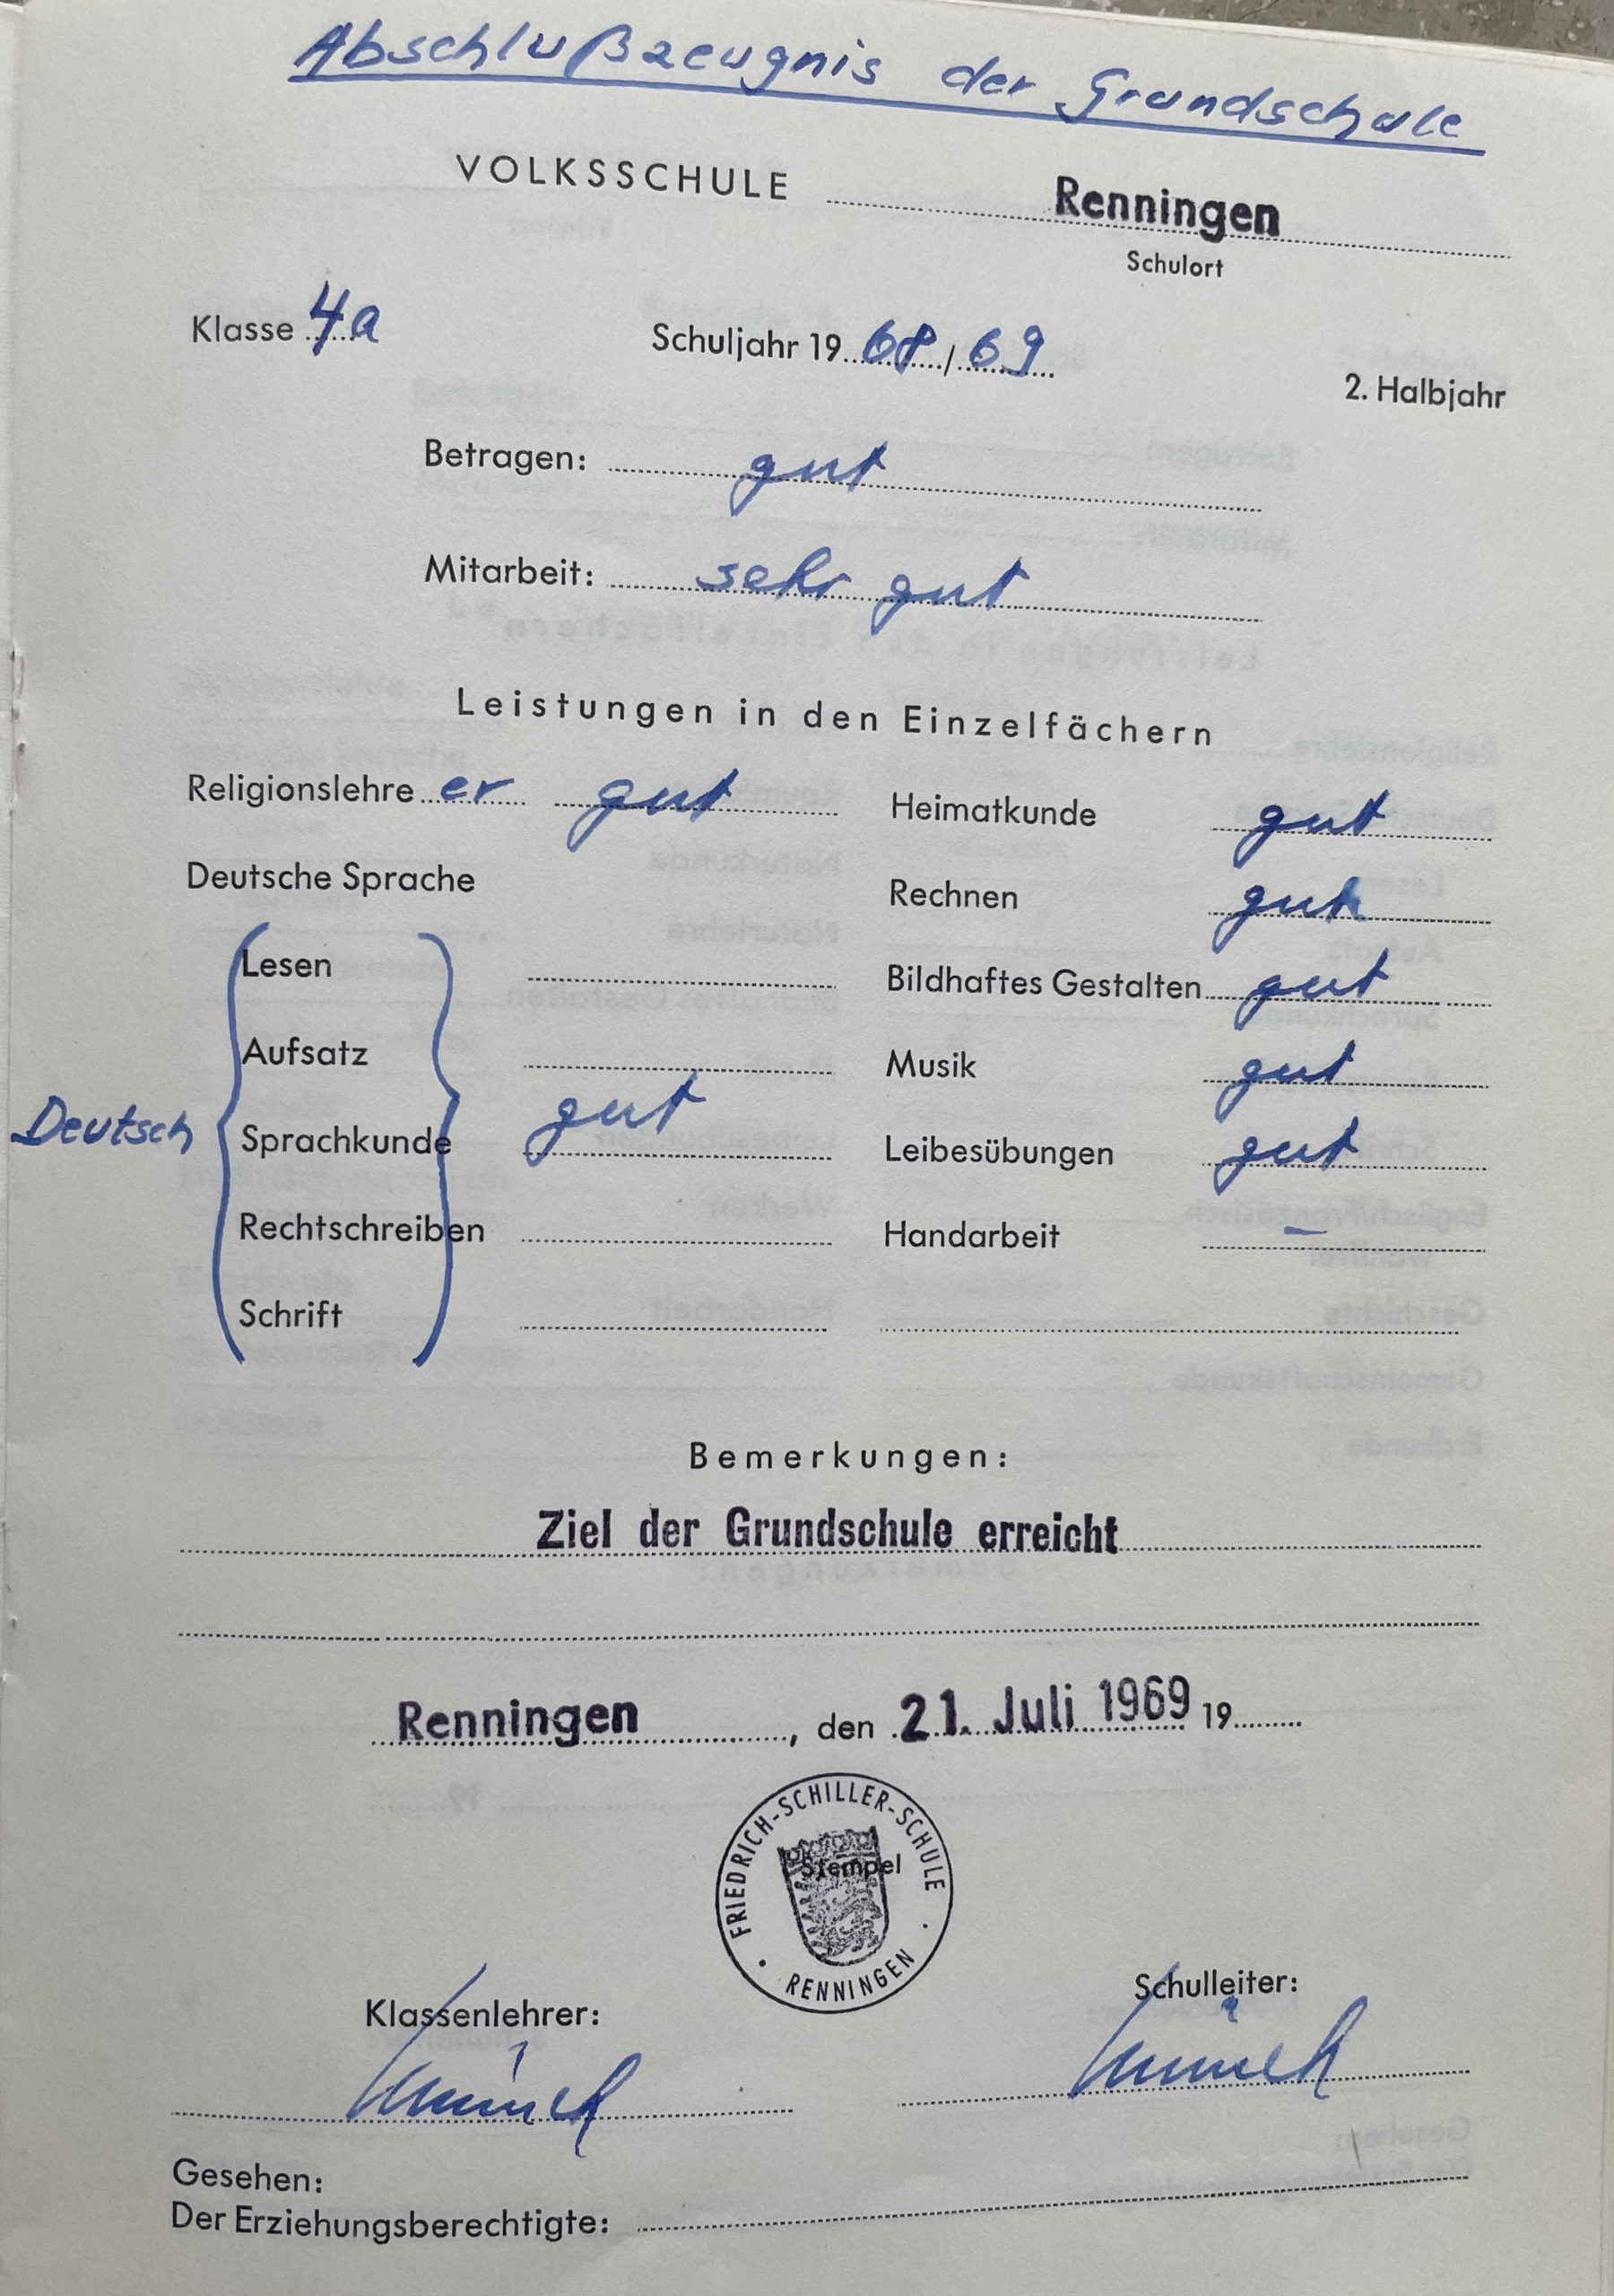 Abschlußzeugnis der Grundschule
VOLKSSCHULE Renningen
Schulort
Klasse 4a Schuljahr 19 68 / 69 2. Halbjahr
Betragen: gut
Mitarbeit: sehr gut
Leistungen in den Einzelfächern
Religionslehre er gut
Deutsche Sprache
Lesen
Aufsatz
Deutsch Sprachkunde gut
Rechtschreiben
Schrift
Heimatkunde gut
Rechnen gut
Bildhaftes Gestalten gut
Musik gut
Leibesübungen gut
Handarbeit –
Bemerkungen:
Ziel der Grundschule erreicht
Renningen, den 21. Juli 1969 19
FRIEDRICH-SCHILLER-SCHULE
Stempel
RENNINGEN
Klassenlehrer:
Schulleiter:
Gesehen:
Der Erziehungsberechtigte: